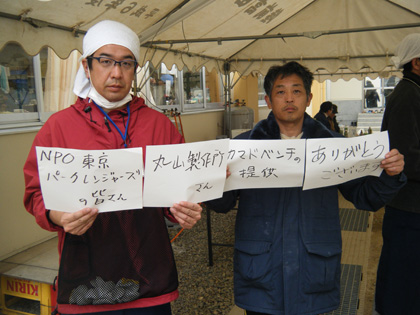 NPO 東京
パークレンジャーズ
の皆さん
丸山製作所
さん
カマドベンチの
提供
ありがとう
ございます
KIRIN